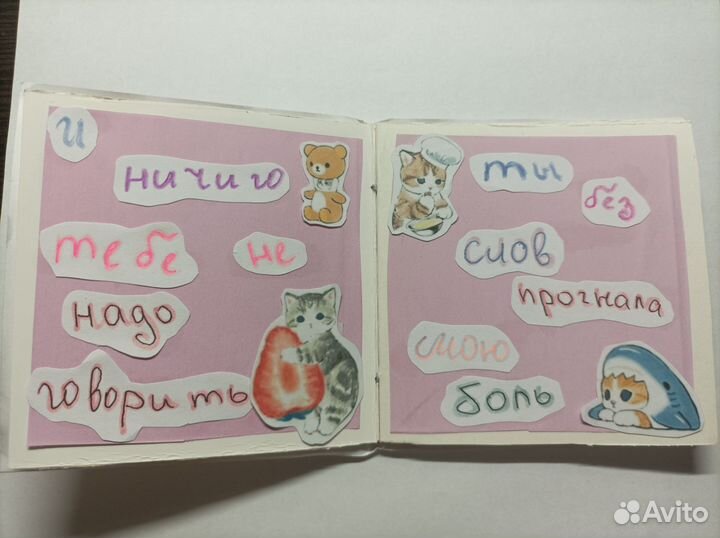 и
ничиго
тебе не
надо
говорить
ты
без
слов
прогнала
мою
боль
Avito